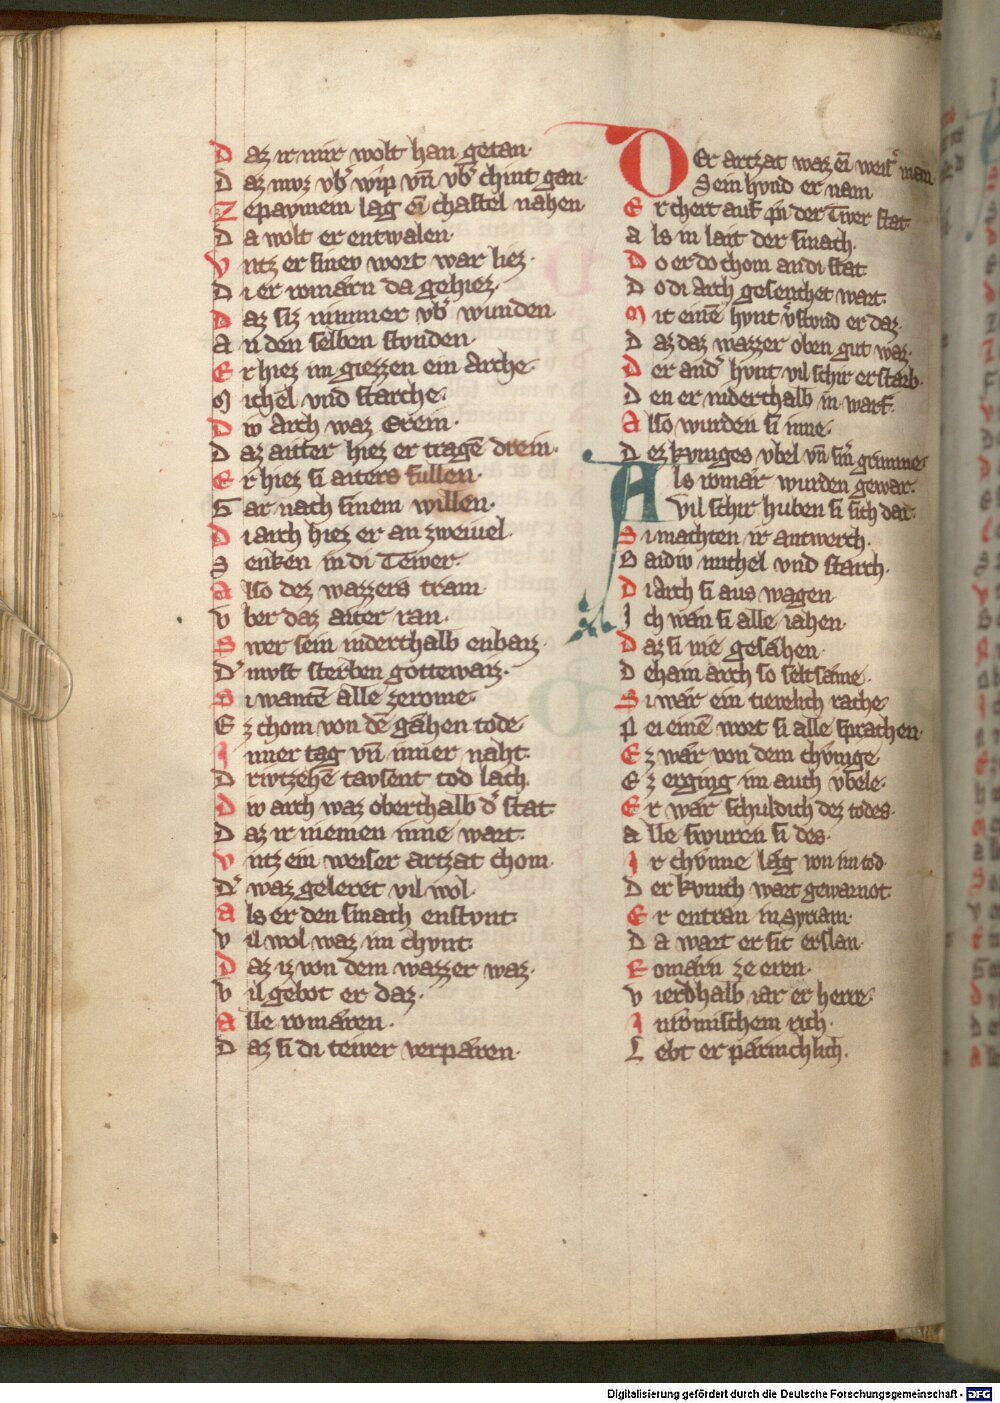 D az ir mir wolt han getan·
D az mvz vb̾ wip vn̄ vb̾ chint gan·
Z epaymein lag ein chastel nahen
D a wolt er entwalen·
V ntz er sinev wort war liez·
D i er romarn da gehiez·
D az siz nimmer vb̾ wunden
A n den selben stvnden·
E r hiez im giezzen ein arche·
M ichel vnd starche·
D iv arch waz Erein·
D az aitter hiez er tragē drein·
E r hiez si aiters fullen·
G ar nach sinem willen·
D i arch hiez er an zweivel·
S enken in di Teiver·
A lso dez wazzers tram
V ber daz aiter ran·
S wer sein niderthalb enbaiz·
D͛ mvst sterben gottewaiz·
S i wantē alle zerome·
E z chom von dē gahen tode
I nner tag vn̄ inner naht·
D rivtzehē tavsent tod lach·
D iv arch waz oberthalb d͛ stat·
D az ir niemen inne wart·
V ntz ein weiser artzat chom·
D͛ waz geleret vil wol·
A ls er den smach enstvnt·
V il wol waz im chvnt·
D az iz von dem wazzer waz·
V il gebot er daz·
A lle romären·
D az si di teiver verpären·
D Er artzat waz ei weis͛ man
Sein hvnd er nam
E r chert auf pei der Tiver stat·
A ls in lait der smach·
D o er do chom an di stat
D o di arch gesenchet wart·
M it einē hvnt v͛stvnd er daz·
D az daz wazzer oben gut waz·
D er and͛ hvnt vil schir erstarb·
D en er niderthalb in warf·
A lso wurden si inne·
D ez kvniges vbel vn̄ sin̄ grimme·
A ls romär wurden gewar·
Vil schir huben si sich dar·
S i machten ir antwerch·
B aidiv michel vnd starch·
D i arch si aus wagen
I ch wän si alle iahen·
D az si nie gesähen·
D ehain arch so seltsäme·
S i wär ein tievelich rache
P ei einē wort si alle sprachen·
E z wär von dem chvnige
E z erging im auch vbele·
E r wär schuldich dez todes·
A lle swuren si des·
I r chvnne lag von im tod
D er kvnich wart gewarnot
E r entran in Syriam·
D a wart er sit erslan·
R omärn ze eren·
V ierdhalb iar er herre·
I n römischem rich·
L ebt er pärmchlich·
Digitalisierung gefördert durch die Deutsche Forschungsgemeinschaft - DFG